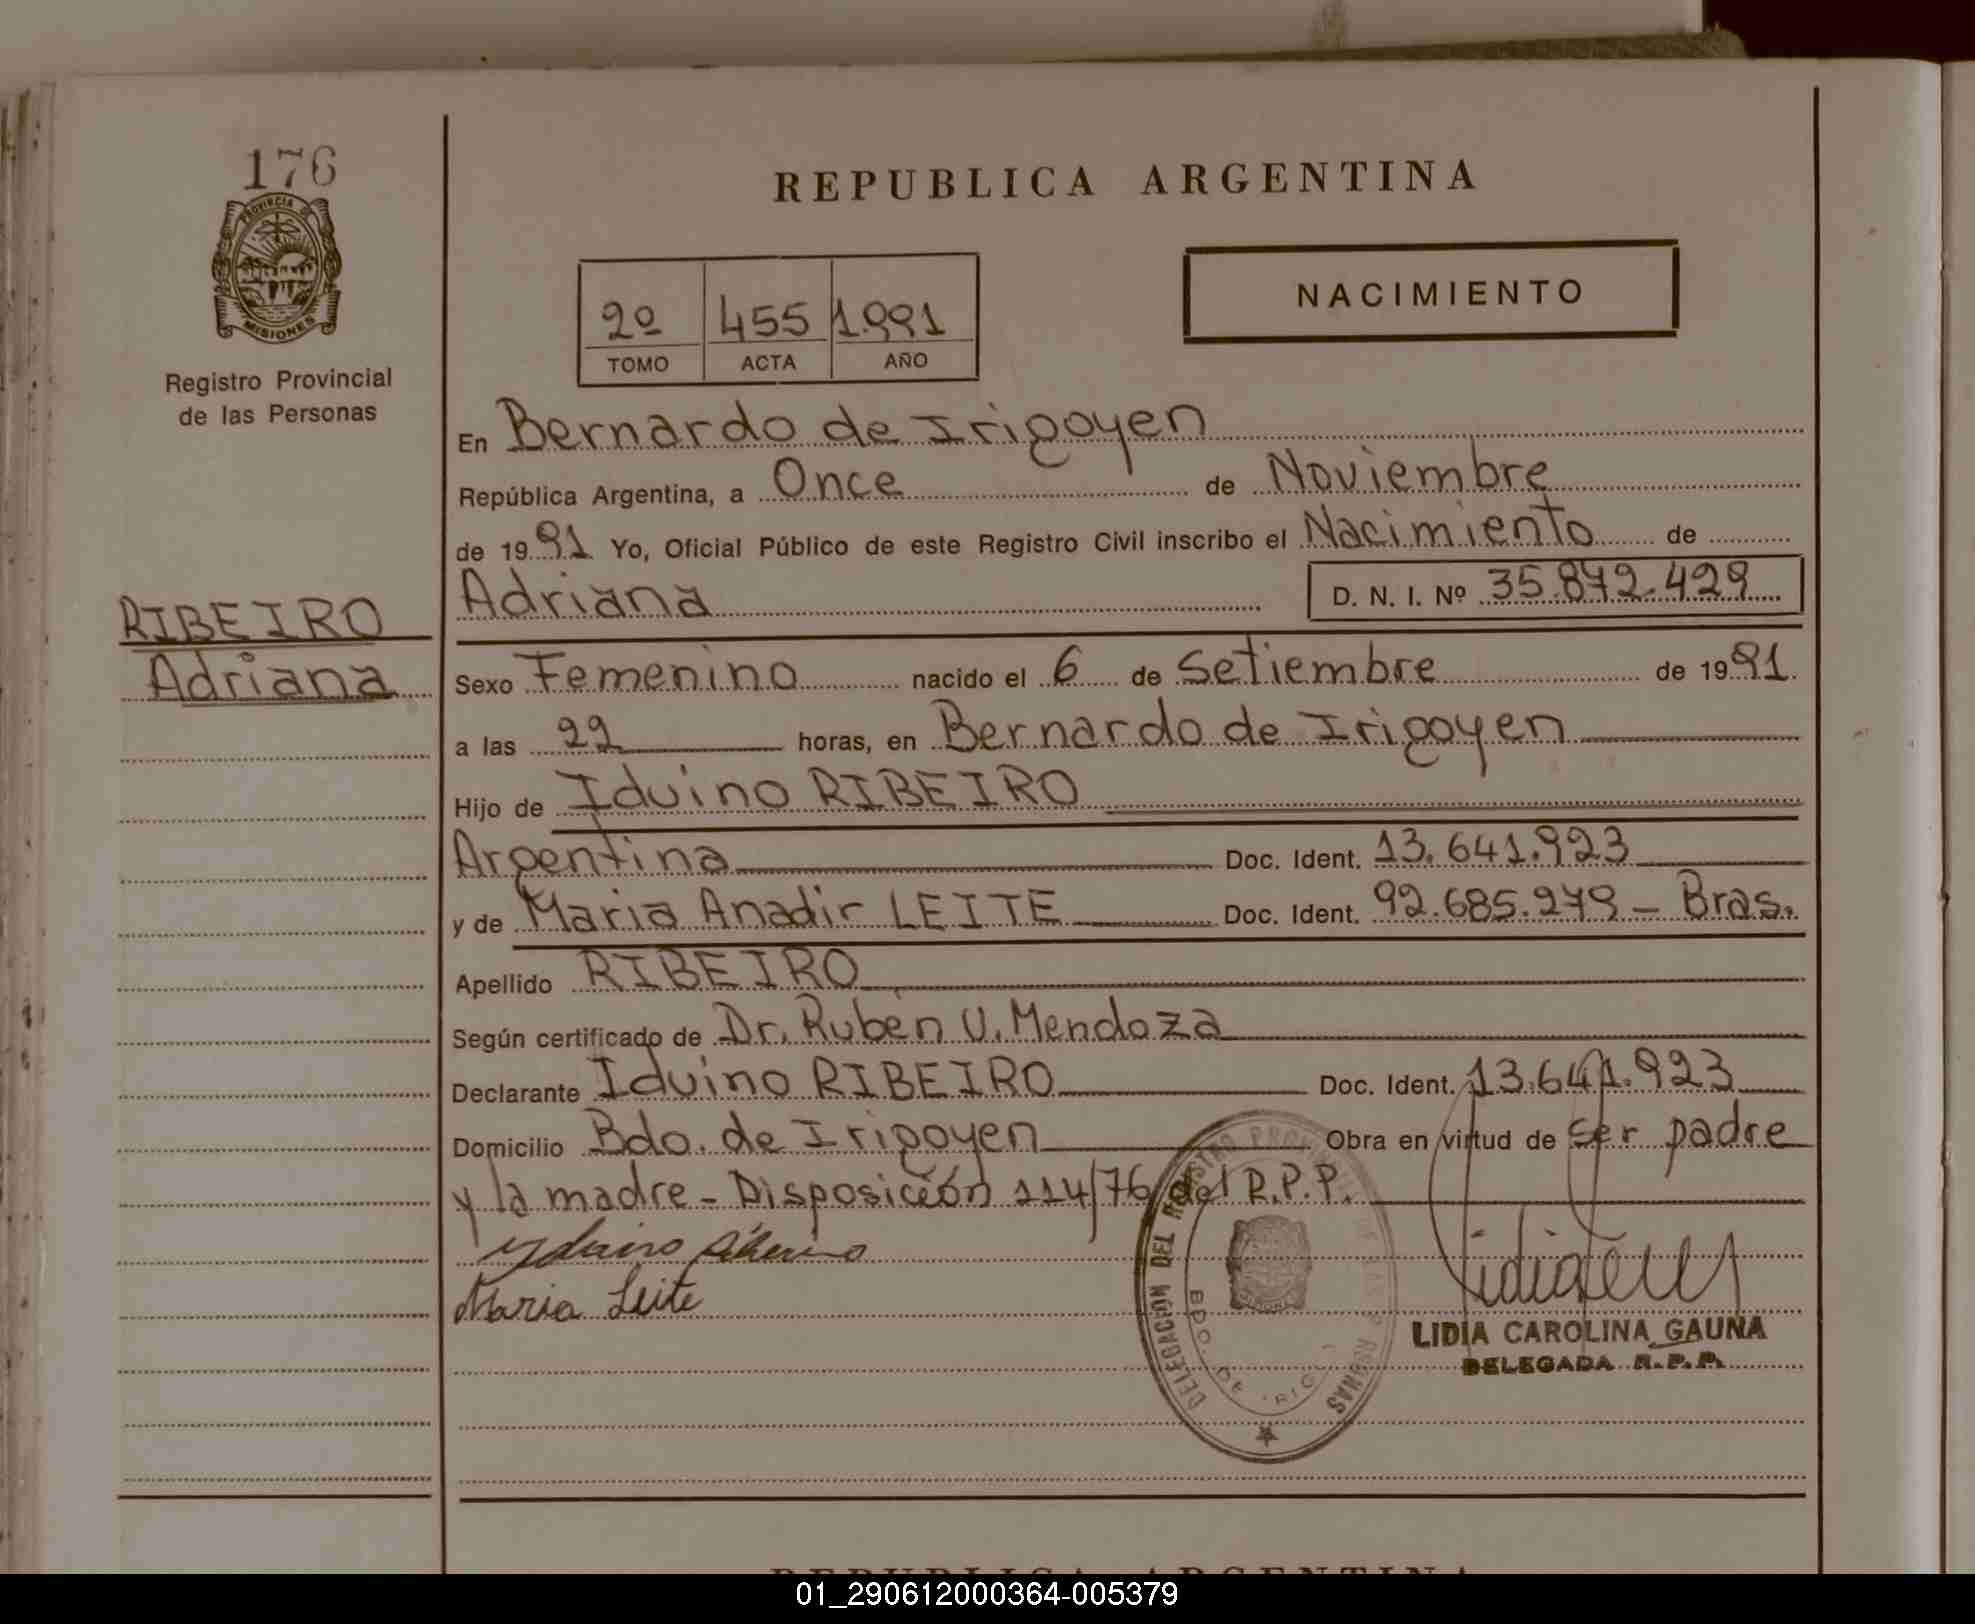 176
PROVINCIA DE
MISIONES
Registro Provincial
de las Personas
RIBEIRO
Adriana
REPUBLICA ARGENTINA
2º 455 1.991
TOMO ACTA AÑO
NACIMIENTO
En Bernardo de Irigoyen
República Argentina, a Once de Noviembre
de 1991 Yo, Oficial Público de este Registro Civil inscribo el Nacimiento de
Adriana D. N. I. Nº 35.872.429
Sexo Femenino nacido el 6 de Setiembre de 1991.
a las 22 horas, en Bernardo de Irigoyen
Hijo de Iduino RIBEIRO
Argentina Doc. Ident. 13.641.923
y de Maria Anadir LEITE Doc. Ident. 92.685.279 - Bras.
Apellido RIBEIRO
Según certificado de Dr. Rubén U. Mendoza
Declarante Iduino RIBEIRO Doc. Ident. 13.641.923
Domicilio Bdo. de Irigoyen Obra en virtud de ser padre
y la madre - Disposición 114/76 del R.P.P.
Maria Leite
DELEGACION DEL REGISTRO PROVINCIAL DE LAS PERSONAS
BDO. DE IRIG
LIDIA CAROLINA GAUNA
DELEGADA R.P.P.
REPUBLICA ARGENTINA
01_290612000364-005379